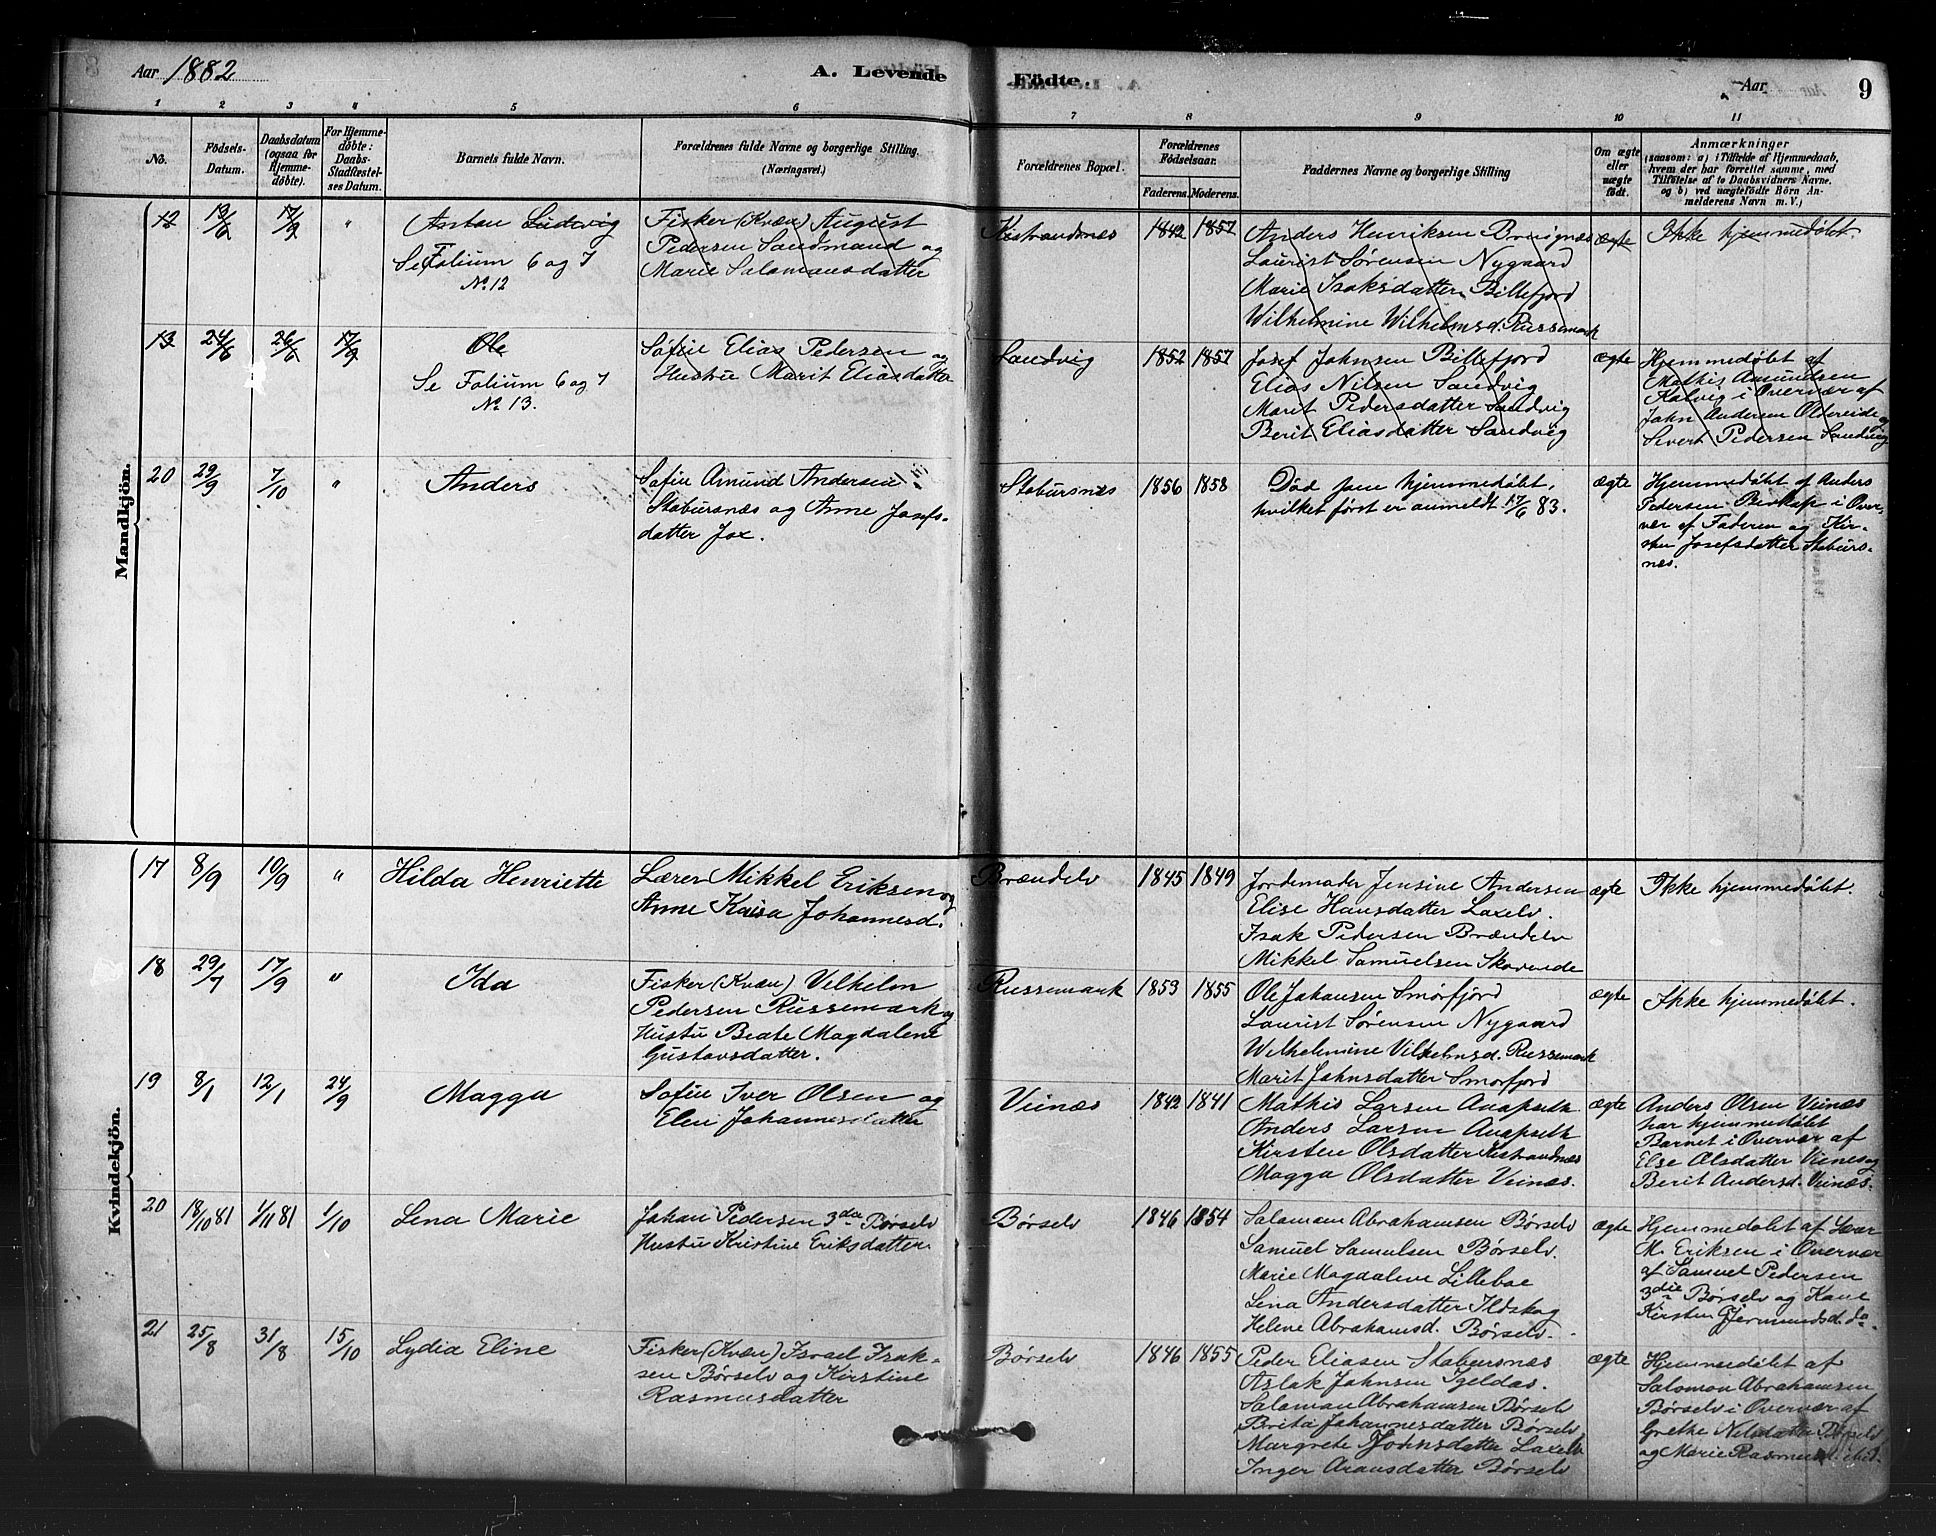 Aar 1882
A. Levende
Födte.
Aar
9
1 2 3 4 5 6 7 8 9 10 11
No.
Födsels-
Datum.
Daabsdatum
(ogsaa for
Hjemme-
döbte).
For Hjemme-
döbte:
Daabs-
Stadfæstel-
ses Datum.
Barnets fulde Navn.
Forældrenes fulde Navne og borgerlige Stilling.
(Næringsvei.)
Forældrenes Bopæl.
Forældrenes
Födselsaar.
Faderens.
Moderens.
Faddernes Navne og borgerlige Stilling
Om ægte
eller
uægte
födt.
Anmærkninger
(saasom: a) i Tilfælde af Hjemmedaab,
hvem der har forrettet samme, med
Tilföielse af to Daabsvidners Navne,
og b) ved uægtefödte Börn An-
melderens Navn m. V.)
Mandkjön.
12
19/6
17/9
"
Anton Ludvig
Se Folium 6 og 7
No. 12
Fisker (Kvæn) August
Pedersen Sandmand og
Marie Salamonsdatter
Kistrandsnæs
1842
1852
Anders Henriksen
Laurist Sørensen Nygaard
Marie Isaksdatter Billefjord
Wilhelmine Wilhelmsd. Russemark
ægte
Ikke hjemmedøbt.
13
24/6
26/6
17/9
Ole
Se Folium 6 og 7
No. 13.
Søfin Elias Pedersen og
Hustru Marit Eliasdatter
Sandvig
1852
1857
Josef Johnsen Billefjord
Elias Nilsen Sandvig
Marit Pedersdatter Sandvig
Berit Eliasdatter Sandvig
ægte
Hjemmedøbt af
Mathis Amundsen
Kolvig i Overvær af
John Andersen Oldereide og
Sivert Pedersen Sandvig
20
29/9
7/10
"
Anders
Søfin Amund Andersen
Stabursnæs og Anne Josefs-
datter Jox.
Stabursnæs
1856
1858
Død som hjemmedøbt,
hvilket først er anmeldt 17/6 83.
ægte
Hjemmedøbt af Anders
Pedersen Biskop i Over-
vær af Faderen og Kir-
sten Josefsdatter Staburs-
næs.
Kvindekjön.
17
8/9
10/9
"
Hilda Henriette
Lærer Mikkel Eriksen og
Anne Kaisa Johannesd.
Brændelv
1845
1849
Jordemoder Jensine Andersen
Elise Hansdatter Laxelv.
Isak Pedersen Brændelv
Mikkel Samuelsen
ægte
Ikke hjemmedøbt.
18
29/7
17/9
"
Ida
Fisker (Kvæn) Vilhelm
Pedersen Russemark og
Hustru Beate Magdalene
Gustavsdatter.
Russemark
1853
1855
Ole Johansen Smørfjord
Laurist Sørensen Nygaard
Wilhelmine Vilhelmsd. Russemark
Marit Johnsdatter Smørfjord
ægte
Ikke hjemmedøbt.
19
8/1
12/1
24/9
Magga
Søfin Iver Olsen og
Elen Johannesdatter
Veinæs
1842
1841
Mathis Larsen
Anders Larsen
Kirsten Olsdatter Kistrandnæs
Magga Olsdatter Veinæs.
ægte
Anders Olsen Veinæs
har hjemmedøbt
Barnet i Overvær af
Else Olsdatter Veines og
Berit Andersd. Veinæs.
20
18/10 81
1/11 81
1/10
Lena Marie
Johan Pedersen 3die Børselv
Hustru Kristine Eriksdatter.
Børselv
1846
1854
Salamon Abrahamsen Børselv
Samuel Samulsen Børselv.
Marie Magdalene Lilleboe
Lena Andersdatter Ildskog
Helene Abrahamsd. Børselv.
ægte
Hjemmedøbt af Lærer
M. Eriksen i Overvær
af Samuel Pedersen
3die Børselv og Kone
Kirsten Gjermundsd. do.
21
25/8
31/8
15/10
Lydia Eline
Fisker (Kvæn) Israel Isak-
sen Børselv og Kirstine
Rasmusdatter
Børselv
1846
1855
Peder Eliasen Stabursnæs
Aslak Johnsen Igeldas.
Salamon Abrahamsen Børselv
Brita Johannesdatter Børselv
Margrete Johnsdatter Laxelv
Inger Aronsdatter Børselv
ægte
Hjemmedøbt af
Salomon Abrahamsen
Børselv i Overvær af
Grethe Nilsdatter Børselv
og Marie Rasmusd. ibid.